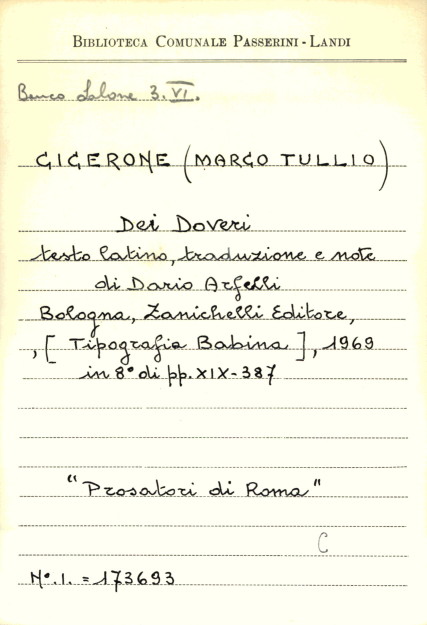 BIBLIOTECA COMUNALE PASSERINI - LANDI
Banco Salone 3. VI.
CICERONE (MARCO TULLIO)
Dei Doveri
testo latino, traduzione e note
di Dario Arfelli
Bologna, Zanichelli Editore,
, [ Tipografia Babina ], 1969
in 8° di pp. XIX-387
"Prosatori di Roma"
C
N°. I. = 173693